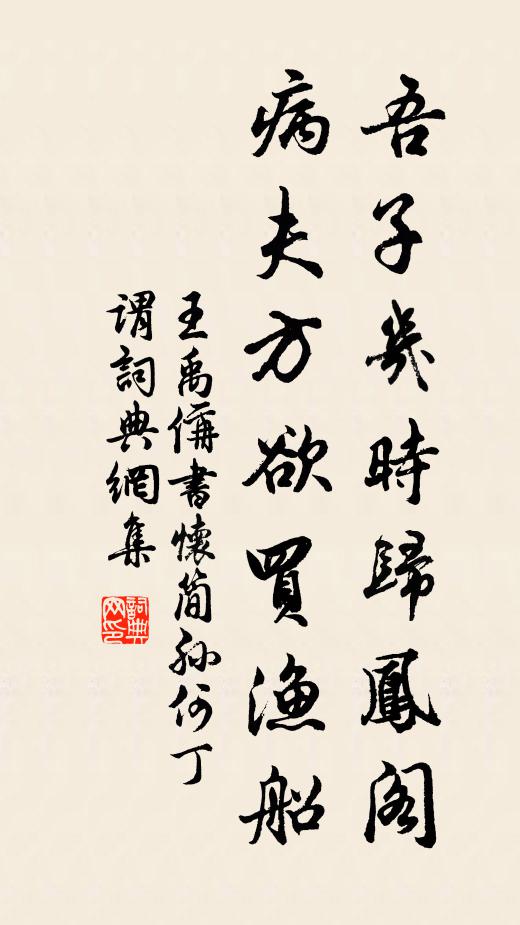 吾子幾時歸鳳閣
病夫方欲買漁船
王禹偁書懷簡孫何丁
謂詞典網集
詞典网印